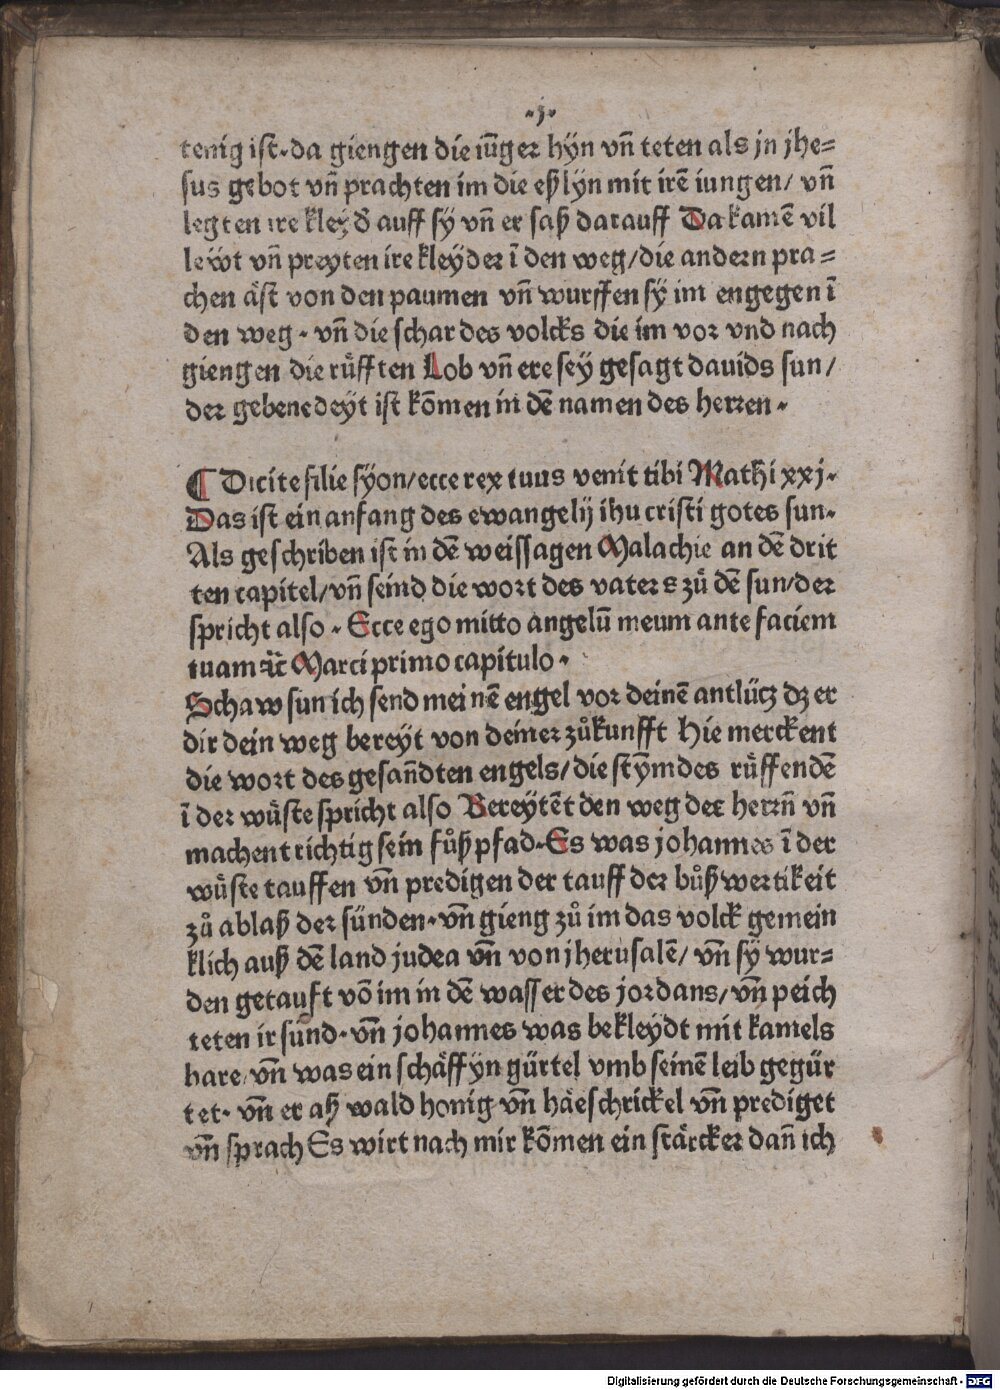 ·j·
tenig ist· da giengen die iũger hyn vñ teten als jn jhe=
sus gebot vñ prachten im die eßlyn mit irē iungen/ vñ
legten ire kleyd̄ auff sy vñ er saß darauff Da kamē vil
lewt vñ preyten ire kleyder ī den weg/ die andern pra=
chen äst von den paumen vñ wurffen sy im engegen ī
den weg· vñ die schar des volcks die im vor vnd nach
giengen die rüfften Lob vñ ere sey gesagt dauids sun/
der gebenedeyt ist kōmen in dē namen des herren·
¶ Dicite filie syon/ ecce rex tuus venit tibi Mathi xxj·
Das ist ein anfang des ewangelij ihu cristi gotes sun·
Als geschriben ist in dē weissagen Malachie an dē drit
ten capitel/ vñ seind die wort des vaters zů dē sun/ der
spricht also· Ecce ego mitto angelū meum ante faciem
tuam ⁊c̄ Marci primo capitulo·
Schaw sun ich send meinē engel vor deinē antlücz dz er
dir dein weg bereyt von deiner zůkunfft Hie merckent
die wort des gesañdten engels/ die stȳm des rüffendē
ī der wüste spricht also Bereytēt den weg der herrñ vñ
machent richtig sein fůßpfad· Es was johannes ī der
wüste tauffen vñ predigen der tauff der bůßwertikeit
zů ablaß der sünden· vñ gieng zů im das volck gemein
klich auß dē land judea vñ von jherusalē/ vñ sy wur=
den getauft vō im in dē wasser des jordans/ vñ peich
teten ir sünd· vñ johannes was bekleydt mit kamels
hare/ vñ was ein schäffyn gürtel vmb seinē leib gegür
tet· vñ er aß wald honig vñ häeschrickel vñ prediget
vñ sprach Es wirt nach mir kōmen ein stärcker dañ ich
Digitalisierung gefördert durch die Deutsche Forschungsgemeinschaft - DFG